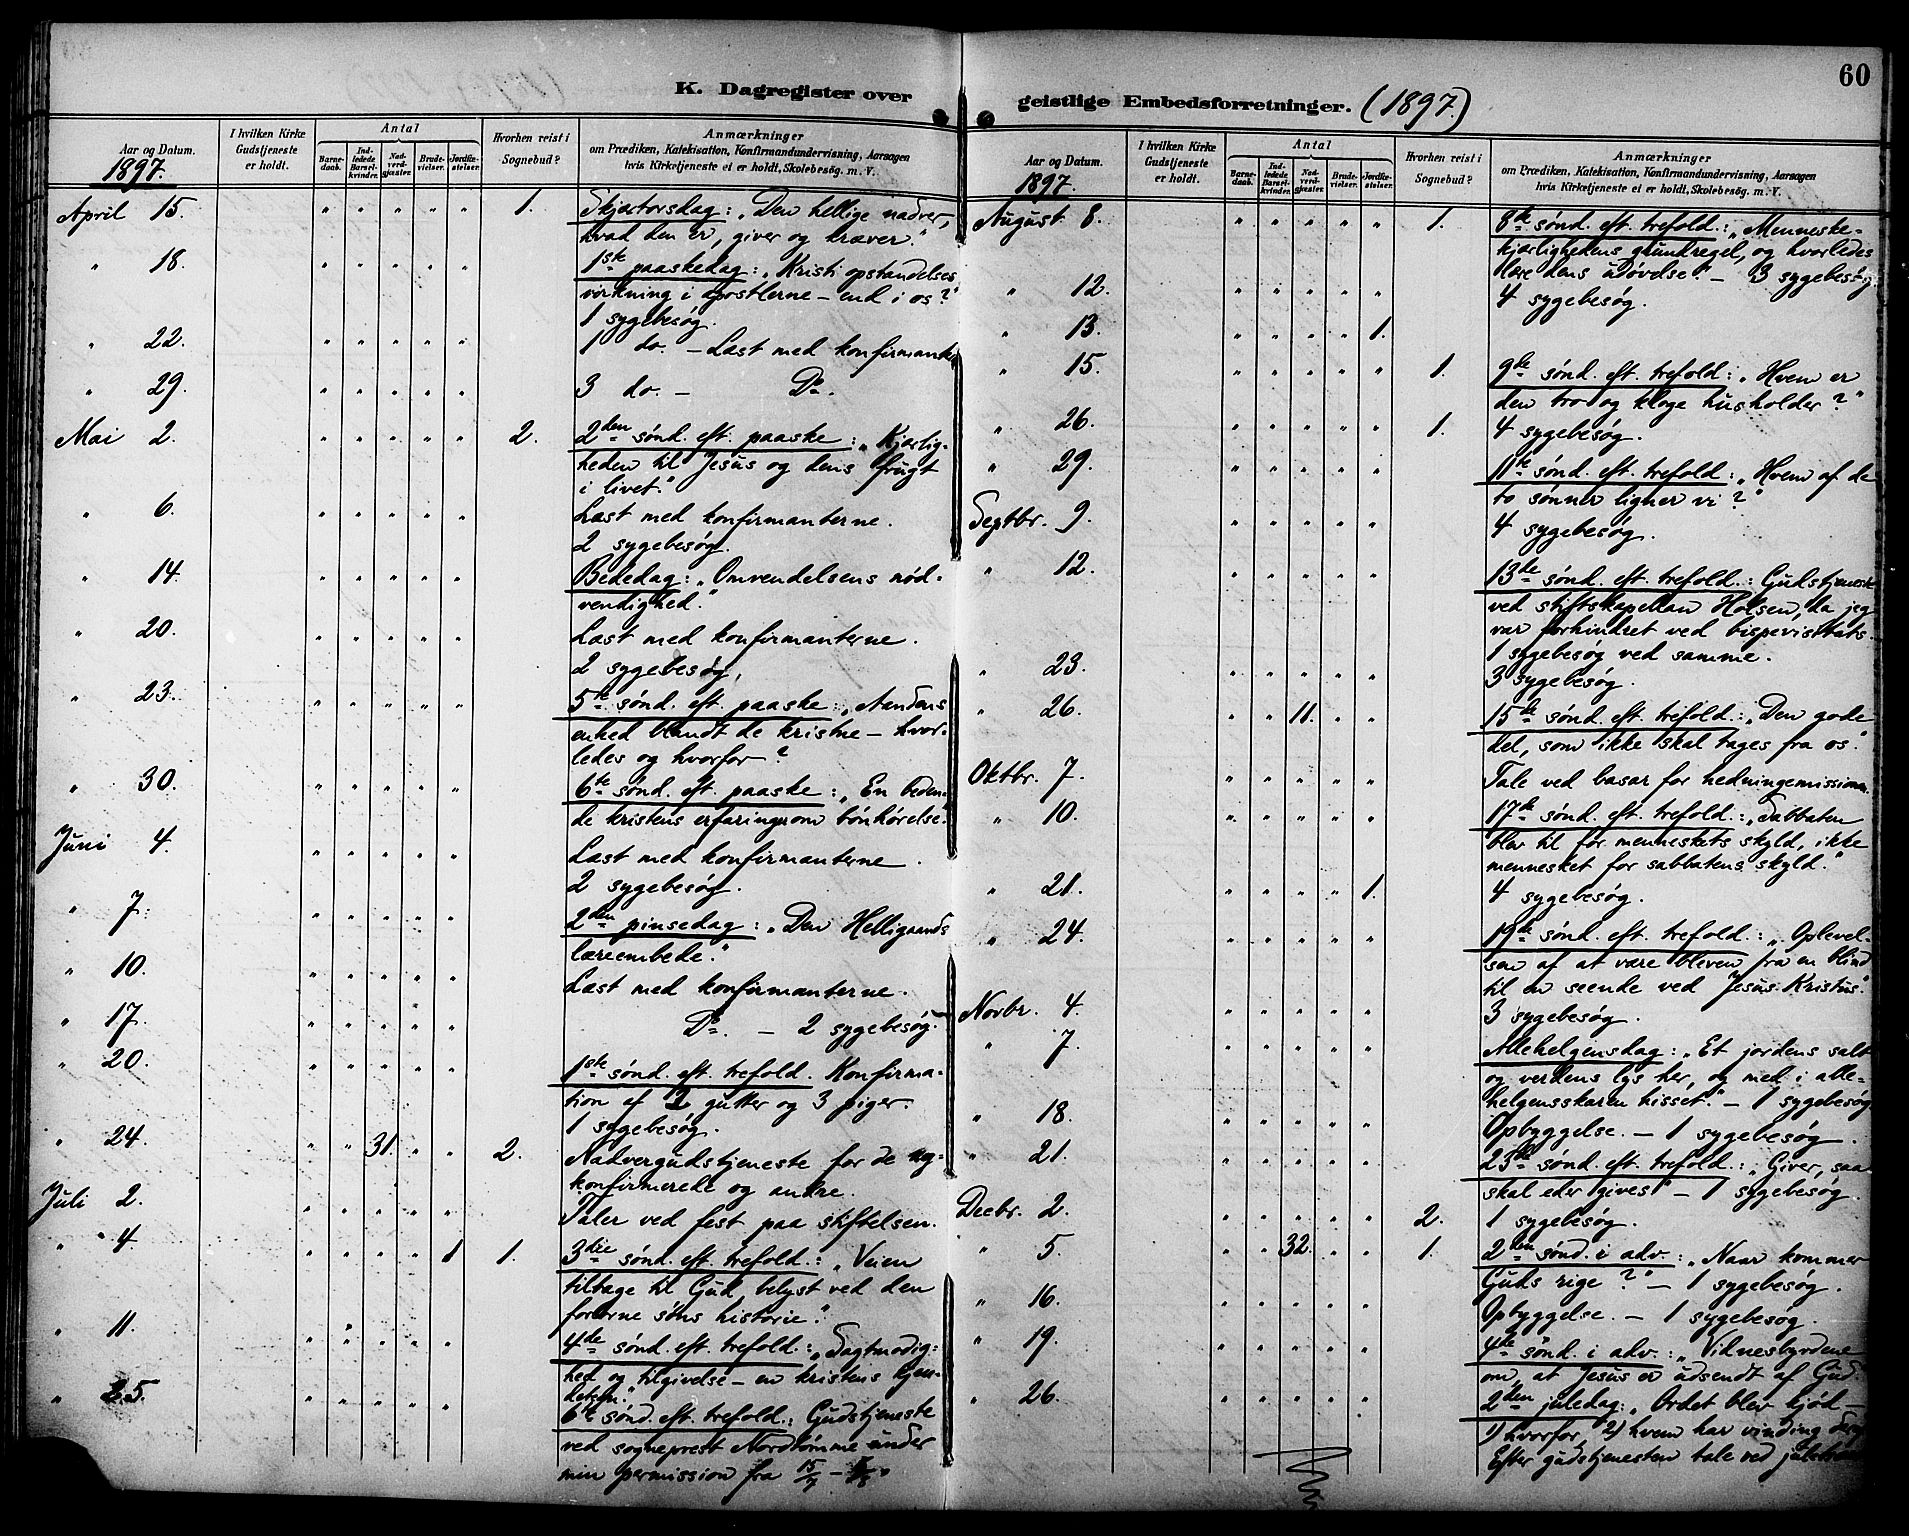 60
K. Dagregister over geistlige Embedsforretninger. (1897.)
Aar og Datum.
1897.
I hvilken Kirke Gudstjeneste er holdt.
Antal
Barnedaab. Indledede Barselkvinder. Nadverdgjæster. Brudevielser. Jordfæstelser.
Hvorhen reist i Sognebud?
Anmærkninger
om Prædiken, Katekisation, Konfirmandundervisning, Aarsagen
hvis Kirketjeneste ei er holdt, Skolebesøg. m. V.
April 15. " " " " " 1. Skjærtorsdag: "Den hellige nadver,
hvad den er, giver og kræver."
" 18. " " " " " 1ste paaskedag: "Kristi opstandelses
virkning i apostlerne – end i os?"
1 sygebesøg.
" 22. " " " " " 1 do. – Læst med konfirmante
" 29. " " " " " 3 do. – Do.
Mai 2. " " " " " 2. 2den sønd. eft. paaske: "Kjærlig-
heden til Jesus og dens frugt
i livet."
" 6. " " " " " Læst med konfirmanterne.
2 sygebesøg.
" 14. " " " " " Bededag: "Omvendelsens nød-
vendighed."
" 20. " " " " " Læst med konfirmanterne.
2 sygebesøg.
" 23. " " " " " 5te sønd. eft. paaske: "Aandens
enhed blandt de kristne – hvor-
ledes og hvorfor?
" 30. " " " " " 6te sønd. eft. paaske: "En beden-
de kristens erfaringer om bønhørelse."
Juni 4. " " " " " Læst med konfirmanterne.
2 sygebesøg.
" 7. " " " " " 2den pinsedag: "Den Helligaands
læreembede."
" 10. " " " " " Læst med konfirmanterne.
" 17. " " " " " Do. – 2 sygebesøg.
" 20. " " " " " 1ste sønd. eft. trefold. Konfirma-
tion af 2 gutter og 3 piger.
1 sygebesøg.
" 24. " " 31. " " 2. Nadvergudstjeneste for de ny-
konfirmerede og andre.
Juli 2. " " " " " Taler ved fest paa stiftelsen.
" 4. " " " " 1 1. 3die sønd. eft. trefold.: "Veien
tilbage til Gud, belyst ved den
forlorne søns historie."
" 11. " " " " " 4de sønd. eft. trefold.: "Sagtmodig-
hed og tilgivelse – en kristens kjen-
detegn."
" 25. " " " " " 6te sønd. eft. trefold.: Gudstjeneste
ved sogneprest Nordtømme under
min permission fra 15/7 –
Aar og Datum.
1897.
I hvilken Kirke Gudstjeneste er holdt.
Antal
Barnedaab. Indledede Barselkvinder. Nadverdgjæster. Brudevielser. Jordfæstelser.
Hvorhen reist i Sognebud?
Anmærkninger
om Prædiken, Katekisation, Konfirmandundervisning, Aarsagen
hvis Kirketjeneste ei er holdt, Skolebesøg. m. V.
August 8. " " " " " 1. 8de sønd. eft. trefold.: "Menneske-
kjærlighedens grundregel, og hvorledes
lære dens udøvelse." – 3 sygebesøg.
" 12. " " " " " 4 sygebesøg.
" 13. " " " " 1.
" 15. " " " " " 1. 9de sønd. eft. trefold.: "Hvem er
den tro og kloge husholder?"
" 26. " " " " " 1. 4 sygebesøg.
" 29. " " " " " 11te sønd. eft. trefold.: "Hvem af de
to sønner ligner vi?"
Septbr. 9. " " " " " 4 sygebesøg.
" 12. " " " " " 13de sønd. eft. trefold.: Gudstjeneste
ved stiftskapellan Holsen, da jeg
var forhindret ved bispevisitats.
1 sygebesøg ved samme.
" 23. " " " " " 3 sygebesøg.
" 26. " " 11. " " 15de sønd. eft. trefold.: "Den gode
del, som ikke skal tages fra os."
Oktbr. 7. " " " " " Tale ved basar for hedningemissionen.
" 10. " " " " " 17de sønd. eft. trefold.: "Sabbaten
blev til for menneskets skyld, ikke
mennesket for sabbatens skyld."
" 21. " " " " 1. 4 sygebesøg.
" 24. " " " " " 19de sønd. eft. trefold.: "Oplevel-
sen af at være bleven fra en blind
til en seende ved Jesus Kristus."
Novbr. 4. " " " " " 3 sygebesøg.
" 7. " " " " " Allehelgensdag: "Et jordens salt
og verdens lys her, og med i alle-
helgensskaren hisset." – 1 sygebesøg.
" 18. " " " " " Opbyggelse. – 1 sygebesøg.
" 21. " " " " " 23de sønd. eft. trefold.: "Giver, saa
skal eder gives" – 1 sygebesøg.
Decbr. 2. " " " " " 2. 1 sygebesøg.
" 5. " " 32. " " 1. 2den sønd. i adv.: "Naar kommer
Guds rige?" – 1 sygebesøg.
" 16. " " " " " Opbyggelse. – 1 sygebesøg.
" 19. " " " " " 4de sønd. i adv.: "Vidnesbyrdene
om, at Jesus er udsendt af Gud."
" 26. " " " " " 2den juledag: "Ordet blev kjød –
1) hvorfor, 2) hvem har vinding
Efter gudstjenesten tale ved